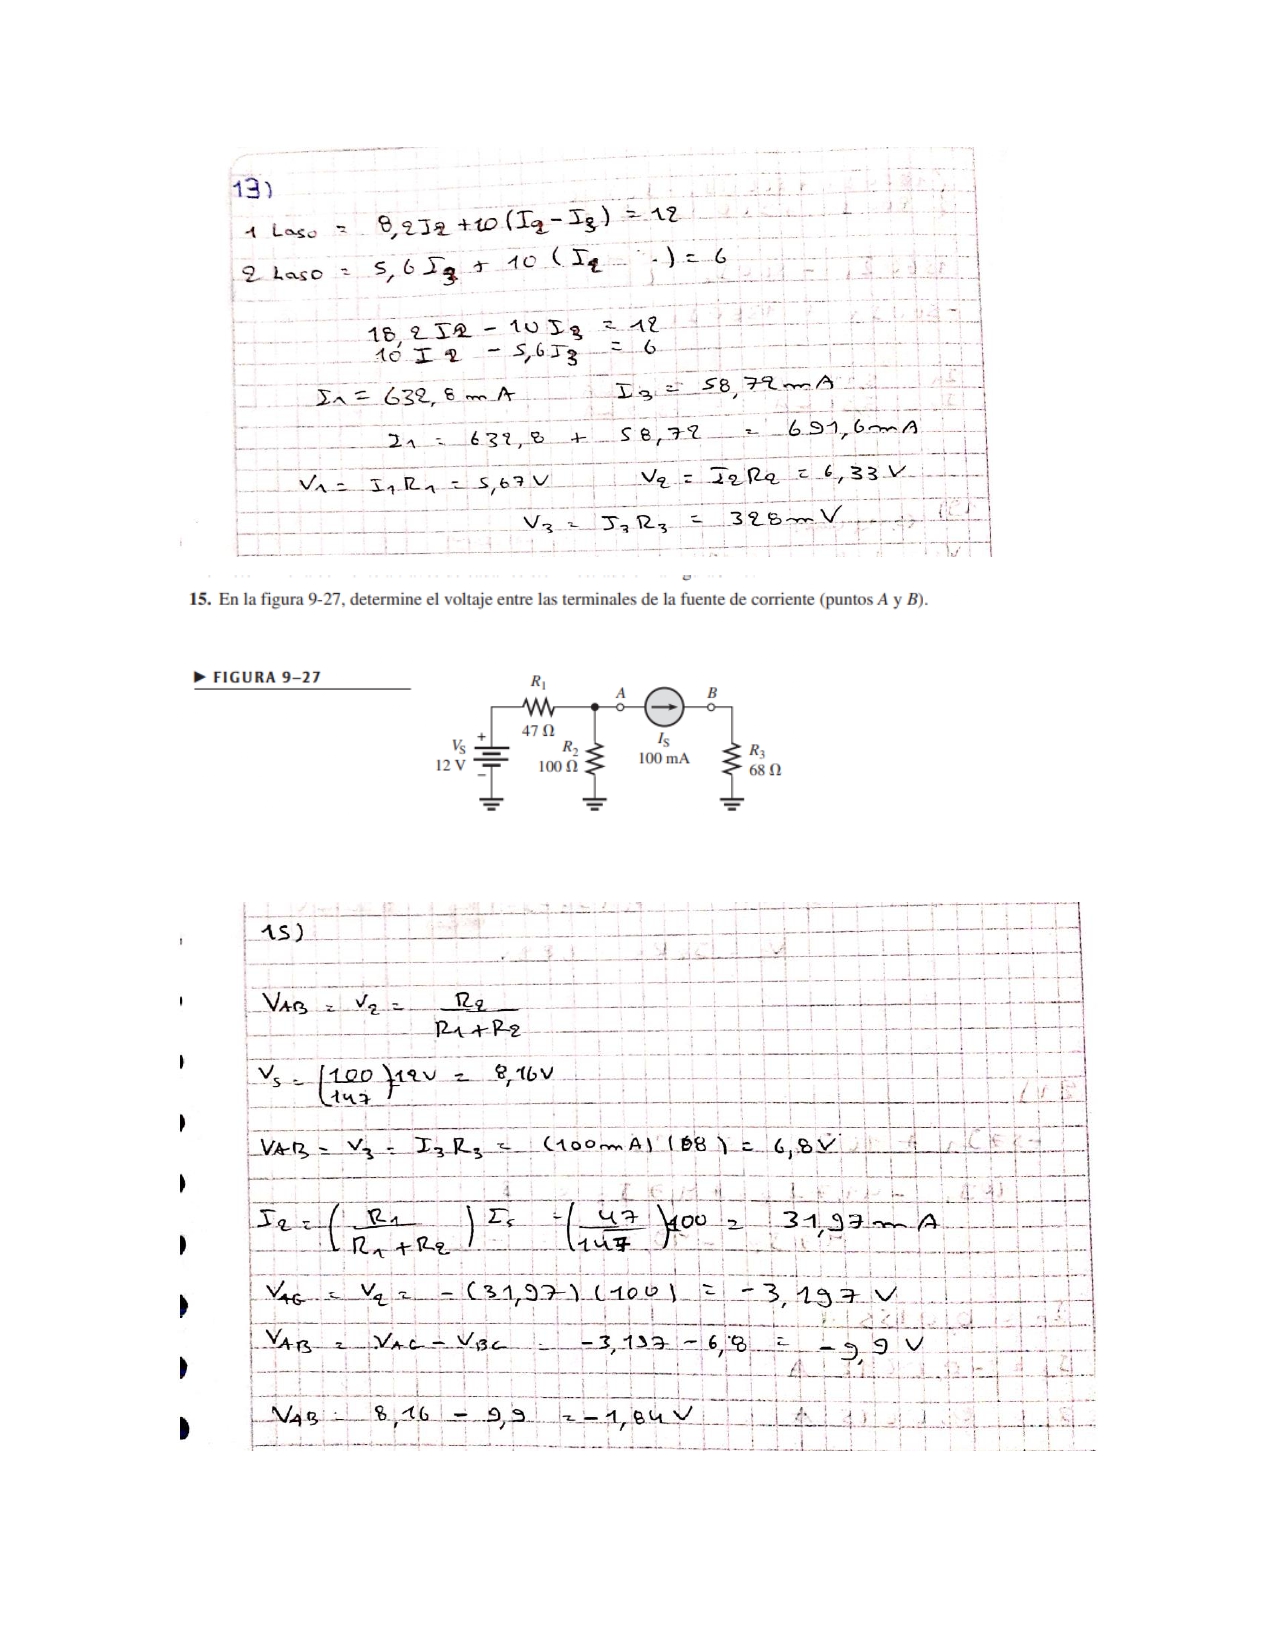 13)
1 Laso = 8,2I2 + 10 (I2 - I3) = 12
2 Laso = 5,6 I3 + 10 ( I2 ) = 6
18,2 I2 - 10 I3 = 12
10 I2 - 5,6 I3 = 6
I1 = 632,8 mA I3 = 58,72 mA
I1 = 632,8 + 58,72 = 691,6 mA
V1 = I1 R1 = 5,67 V V2 = I2 R2 = 6,33 V
V3 = I3 R3 = 328 mV
15. En la figura 9-27, determine el voltaje entre las terminales de la fuente de corriente (puntos A y B).
► FIGURA 9–27
R1
47 Ω
A
B
VS
12 V
+
–
R2
100 Ω
IS
100 mA
R3
68 Ω
15)
VAB = V2 = R2 / R1 + R2
Vs = (100 / 147) 12V = 8,16V
VAB = V3 = I3 R3 = (100mA) (68) = 6,8V
I2 = (R1 / R1 + R2) Is = (47 / 147) 100 = 31,97 mA
VAG = V2 = - (31,97) (100) = - 3,197 V
VAB = VAG - VBG = - 3,197 - 6,8 = - 9,9 V
VAB = 8,16 - 9,9 = - 1,84 V